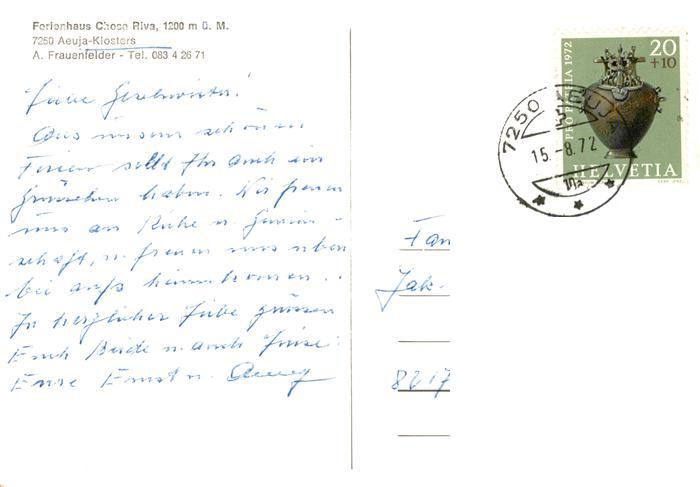 Ferienhaus Chesa Riva, 1200 m ü. M.
7250 Aeuja-Klosters
A. Frauenfelder - Tel. 083 4 26 71
Liebe Geschwister!
Aus unsern schönen
Ferien sollt Ihr auch ein
Grüsslein haben. Wir freuen
uns an Ruhe u. Gemein-
schaft, u. freuen uns eben
bei aufs heimkommen..
In herzlicher Liebe grüssen
Euch Beide u. auch
Eure Ernst u.
HELVETIA
PRO PATRIA 1972
20
+10
7250
15.-8.72
Fam
Jak.
8217